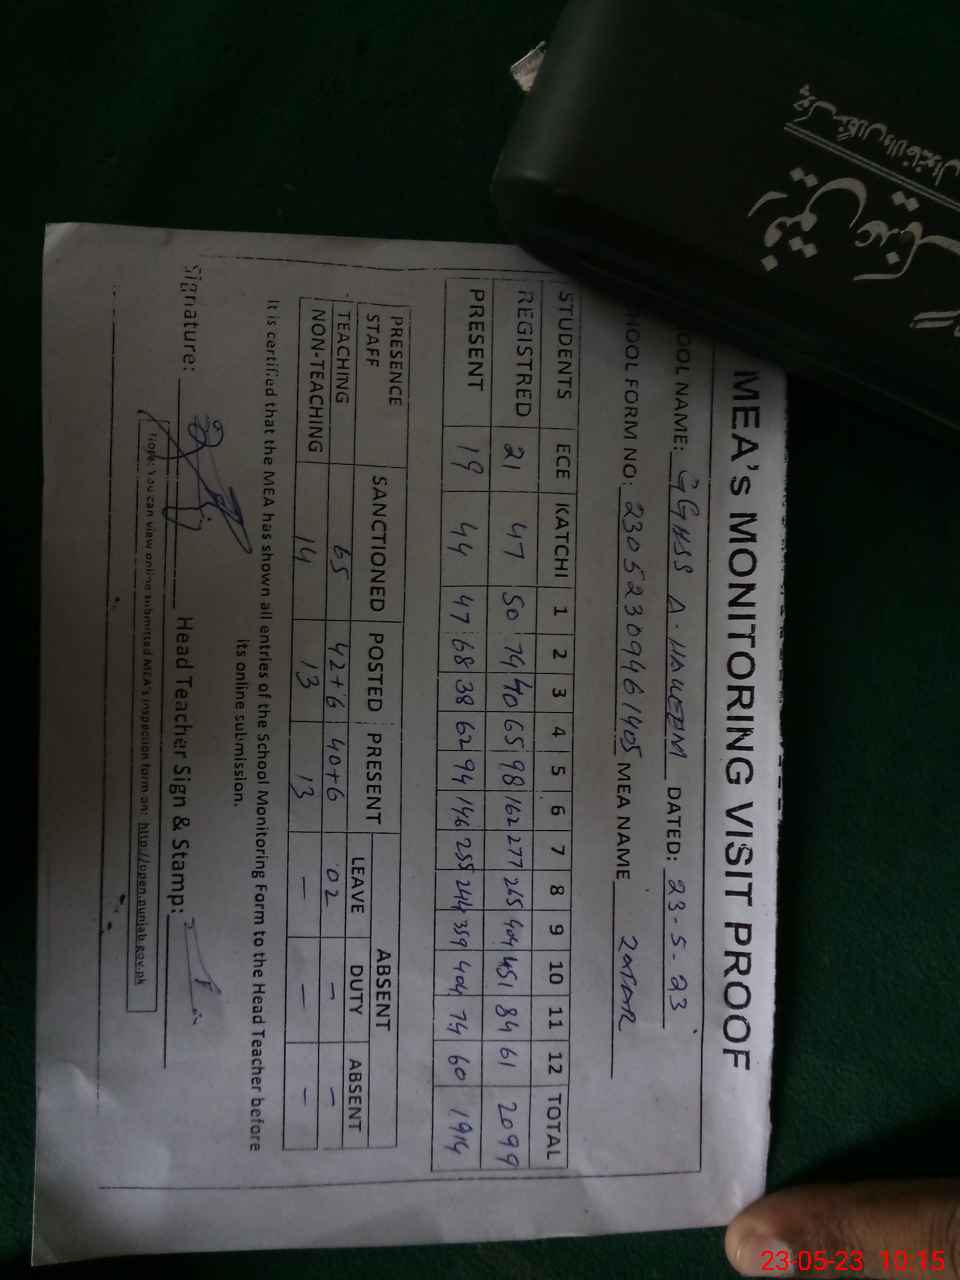 MEA's MONITORING VISIT PROOF
OOL NAME: GGHSS A. HAKEEM DATED: 23-5-23
HOOL FORM NO: 23052309461405 MEA NAME
STUDENTS ECE KATCHI 1 2 3 4 5 6 7 8 9 10 11 12 TOTAL
REGISTRED 21 47 50 74 40 65 98 162 277 265 404 451 84 61 2099
PRESENT 19 44 47 68 38 62 94 146 255 244 359 404 74 60 1914
PRESENCE STAFF SANCTIONED POSTED PRESENT ABSENT
LEAVE DUTY ABSENT
TEACHING 65 42+6 40+6 02 – –
NON-TEACHING 14 13 13 – – –
It is certified that the MEA has shown all entries of the School Monitoring Form to the Head Teacher before
its online submission.
Signature: Head Teacher Sign & Stamp:
Note: You can view online submitted MEA's inspection form on: http://open.punjab.gov.pk
23-05-23 10:15